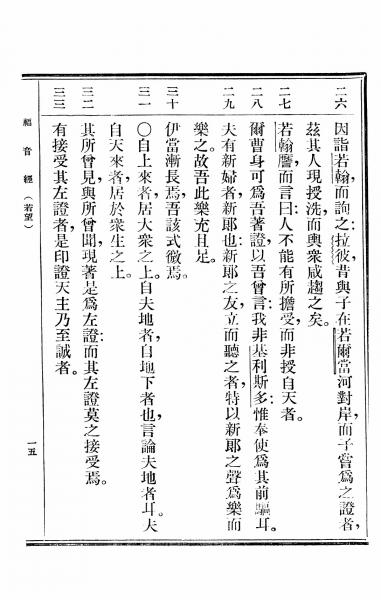 二六 因詣若翰,而詢之:拉彼昔與子在若爾當河對岸,而子嘗爲之證者,
茲其人現授洗,而輿衆咸趨之矣。
二七 若翰譍,而言曰:人不能有所擔受,而非授自天者。
二八 爾曹身可爲吾著證,以吾曾言:我非基利斯多;惟奉使爲其前驅耳。
二九 夫有新婦者,新郎也;新郎之友,立而聽之者,特以新郎之聲爲樂而
樂之。故吾此樂充且足。
三十 伊當漸長焉,吾該式微焉。
三一 〇自上來者,居大衆之上。自夫地者,自地下者也,言論夫地者耳。夫
自天來者,居於衆生之上。
三二 其所曾見,與所曾聞,現著是爲左證:而其左證莫之接受焉。
三三 有接受其左證者,是印證天主乃至誠者。
福音經(若望)
一五